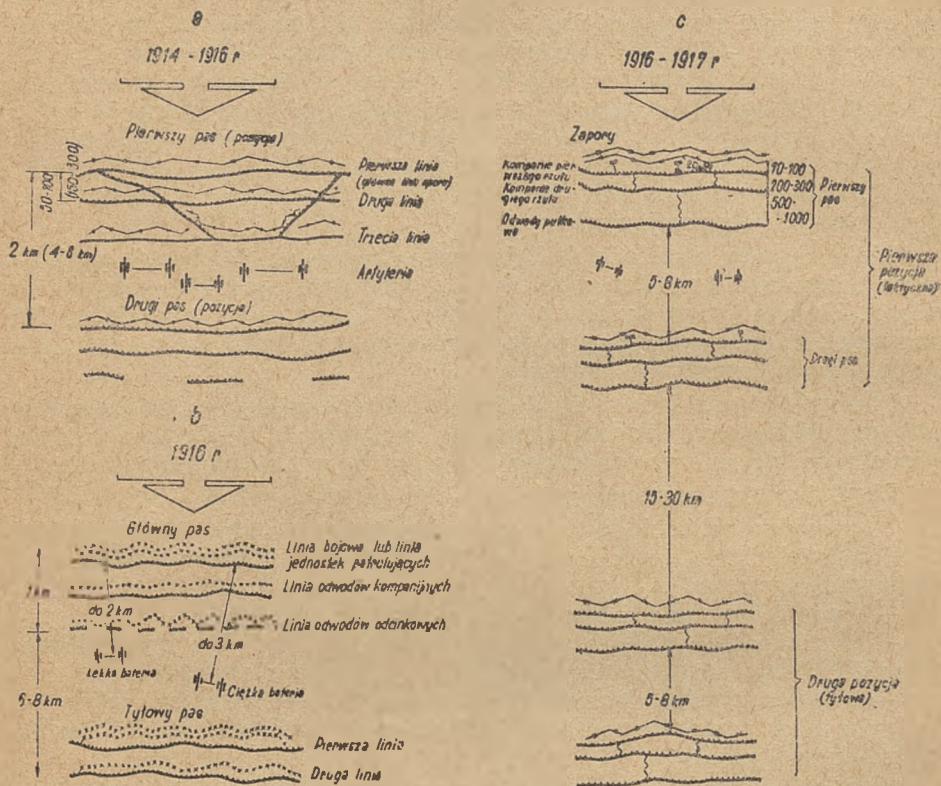 a
1914 - 1916 r
Pierwszy pas (pozycja)
50-100
(150-300)
2 km (4-8 km)
Pierwsza linia
(główna linia oporu)
Druga linia
Trzecia linia
Artyleria
Drugi pas (pozycja)
b
1916 r
Główny pas
Linia bojowa lub linia
jednostek patrolujących
Linia odwodów kompanijnych
do 2 km
Linia odwodów odcinkowych
do 3 km
Lekka bateria
Ciężka bateria
6-8 km
Tyłowy pas
Pierwsza linia
Druga linia
c
1916 - 1917 r
Zapory
Kompanie pier-
wszego rzutu
Kompanie dru-
giego rzutu
Odwody pułko-
we
70-100
200-300
500-
-1000
Pierwszy
pas
5-8 km
Pierwsza
pozycja
(taktyczna)
Drugi pas
15-30 km
Druga pozycja
(tyłowa)
5-8 km